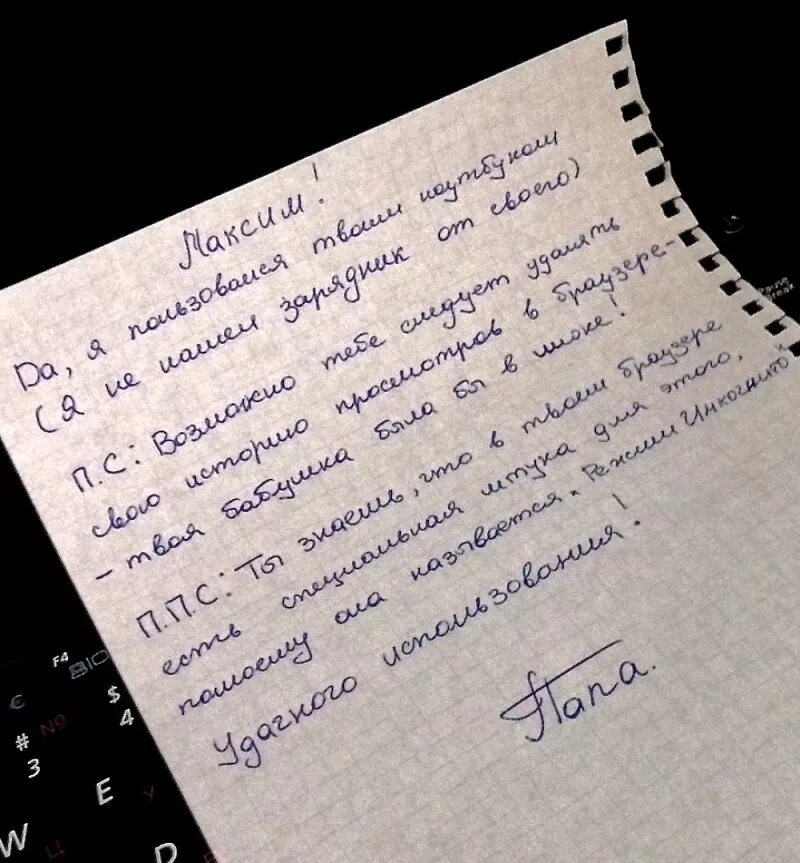 Максим!
Да, я пользовался твоим ноутбуком
(Я не нашел зарядник от своего)
П.С: Возможно тебе следует удалять
свою историю просмотров в браузере-
- твоя бабушка была бы в шоке!
П.П.С: Ты знаешь, что в твоем браузере
есть специальная штука для этого,
помоему она называется "Режим Инкогнито"
Удачного использования!
Папа.
F4
€
$
#
№
4
3
E
W
Ц
D